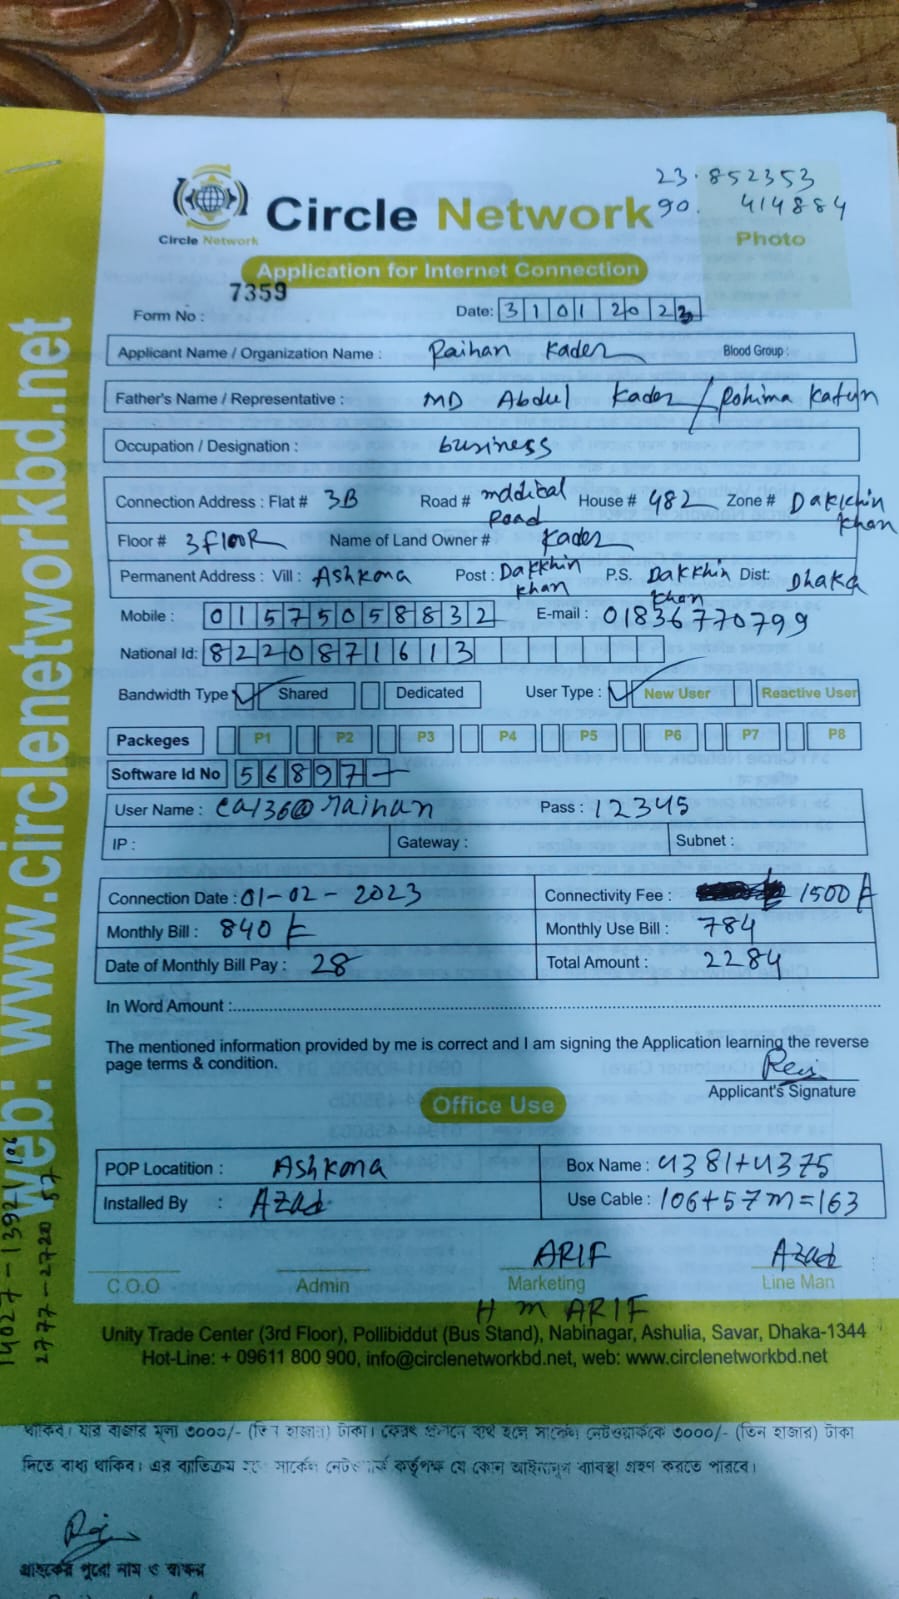 23.852353
90. 414884
Photo
Circle Network
Circle Network
Application for Internet Connection
7359
Form No :
Date: 31 01 2023
Applicant Name / Organization Name : Raihan Kader Blood Group :
Father's Name / Representative : MD Abdul Kader / Rohima Katun
Occupation / Designation : business
Connection Address : Flat # 3B Road # mddical Road House # 482 Zone # Dakkhin khan
Floor # 3 flooR Name of Land Owner # Kader
Permanent Address : Vill : Ashkona Post : Dakkhin khan P.S. Dakkhin khan Dist: Dhaka
Mobile : 01575058832 E-mail : 01836770799
National Id: 8220871613
Bandwidth Type Shared Dedicated User Type : New User Reactive User
Packeges P1 P2 P3 P4 P5 P6 P7 P8
Software Id No 56897
User Name : ca136@raihan Pass : 12345
IP : Gateway : Subnet :
Connection Date : 01-02-2023 Connectivity Fee : 1500
Monthly Bill : 840 Monthly Use Bill : 784
Date of Monthly Bill Pay : 28 Total Amount : 2284
In Word Amount :
The mentioned information provided by me is correct and I am signing the Application learning the reverse
page terms & condition.
Applicant's Signature
Office Use
POP Locatition : Ashkona Box Name : 4381+4375
Installed By : Azad Use Cable : 106+57m=163
ARIF Azad
C.O.O Admin Marketing Line Man
H M ARIF
Unity Trade Center (3rd Floor), Pollibiddut (Bus Stand), Nabinagar, Ashulia, Savar, Dhaka-1344
Hot-Line: + 09611 800 900, info@circlenetworkbd.net, web: www.circlenetworkbd.net
web: www.circlenetworkbd.net
থাকিব। যার বাজার মূল্য ৩০০০/- (তিন হাজার) টাকা। ফেরৎ প্রদানে ব্যর্থ হলে সার্কেল নেটওয়ার্ককে ৩০০০/- (তিন হাজার) টাকা
দিতে বাধ্য থাকিব। এর ব্যতিক্রম হলে সার্কেল নেটওয়ার্ক কর্তৃপক্ষ যে কোন আইনানুগ ব্যবস্থা গ্রহণ করতে পারবে।
গ্রাহকের পুরো নাম ও স্বাক্ষর